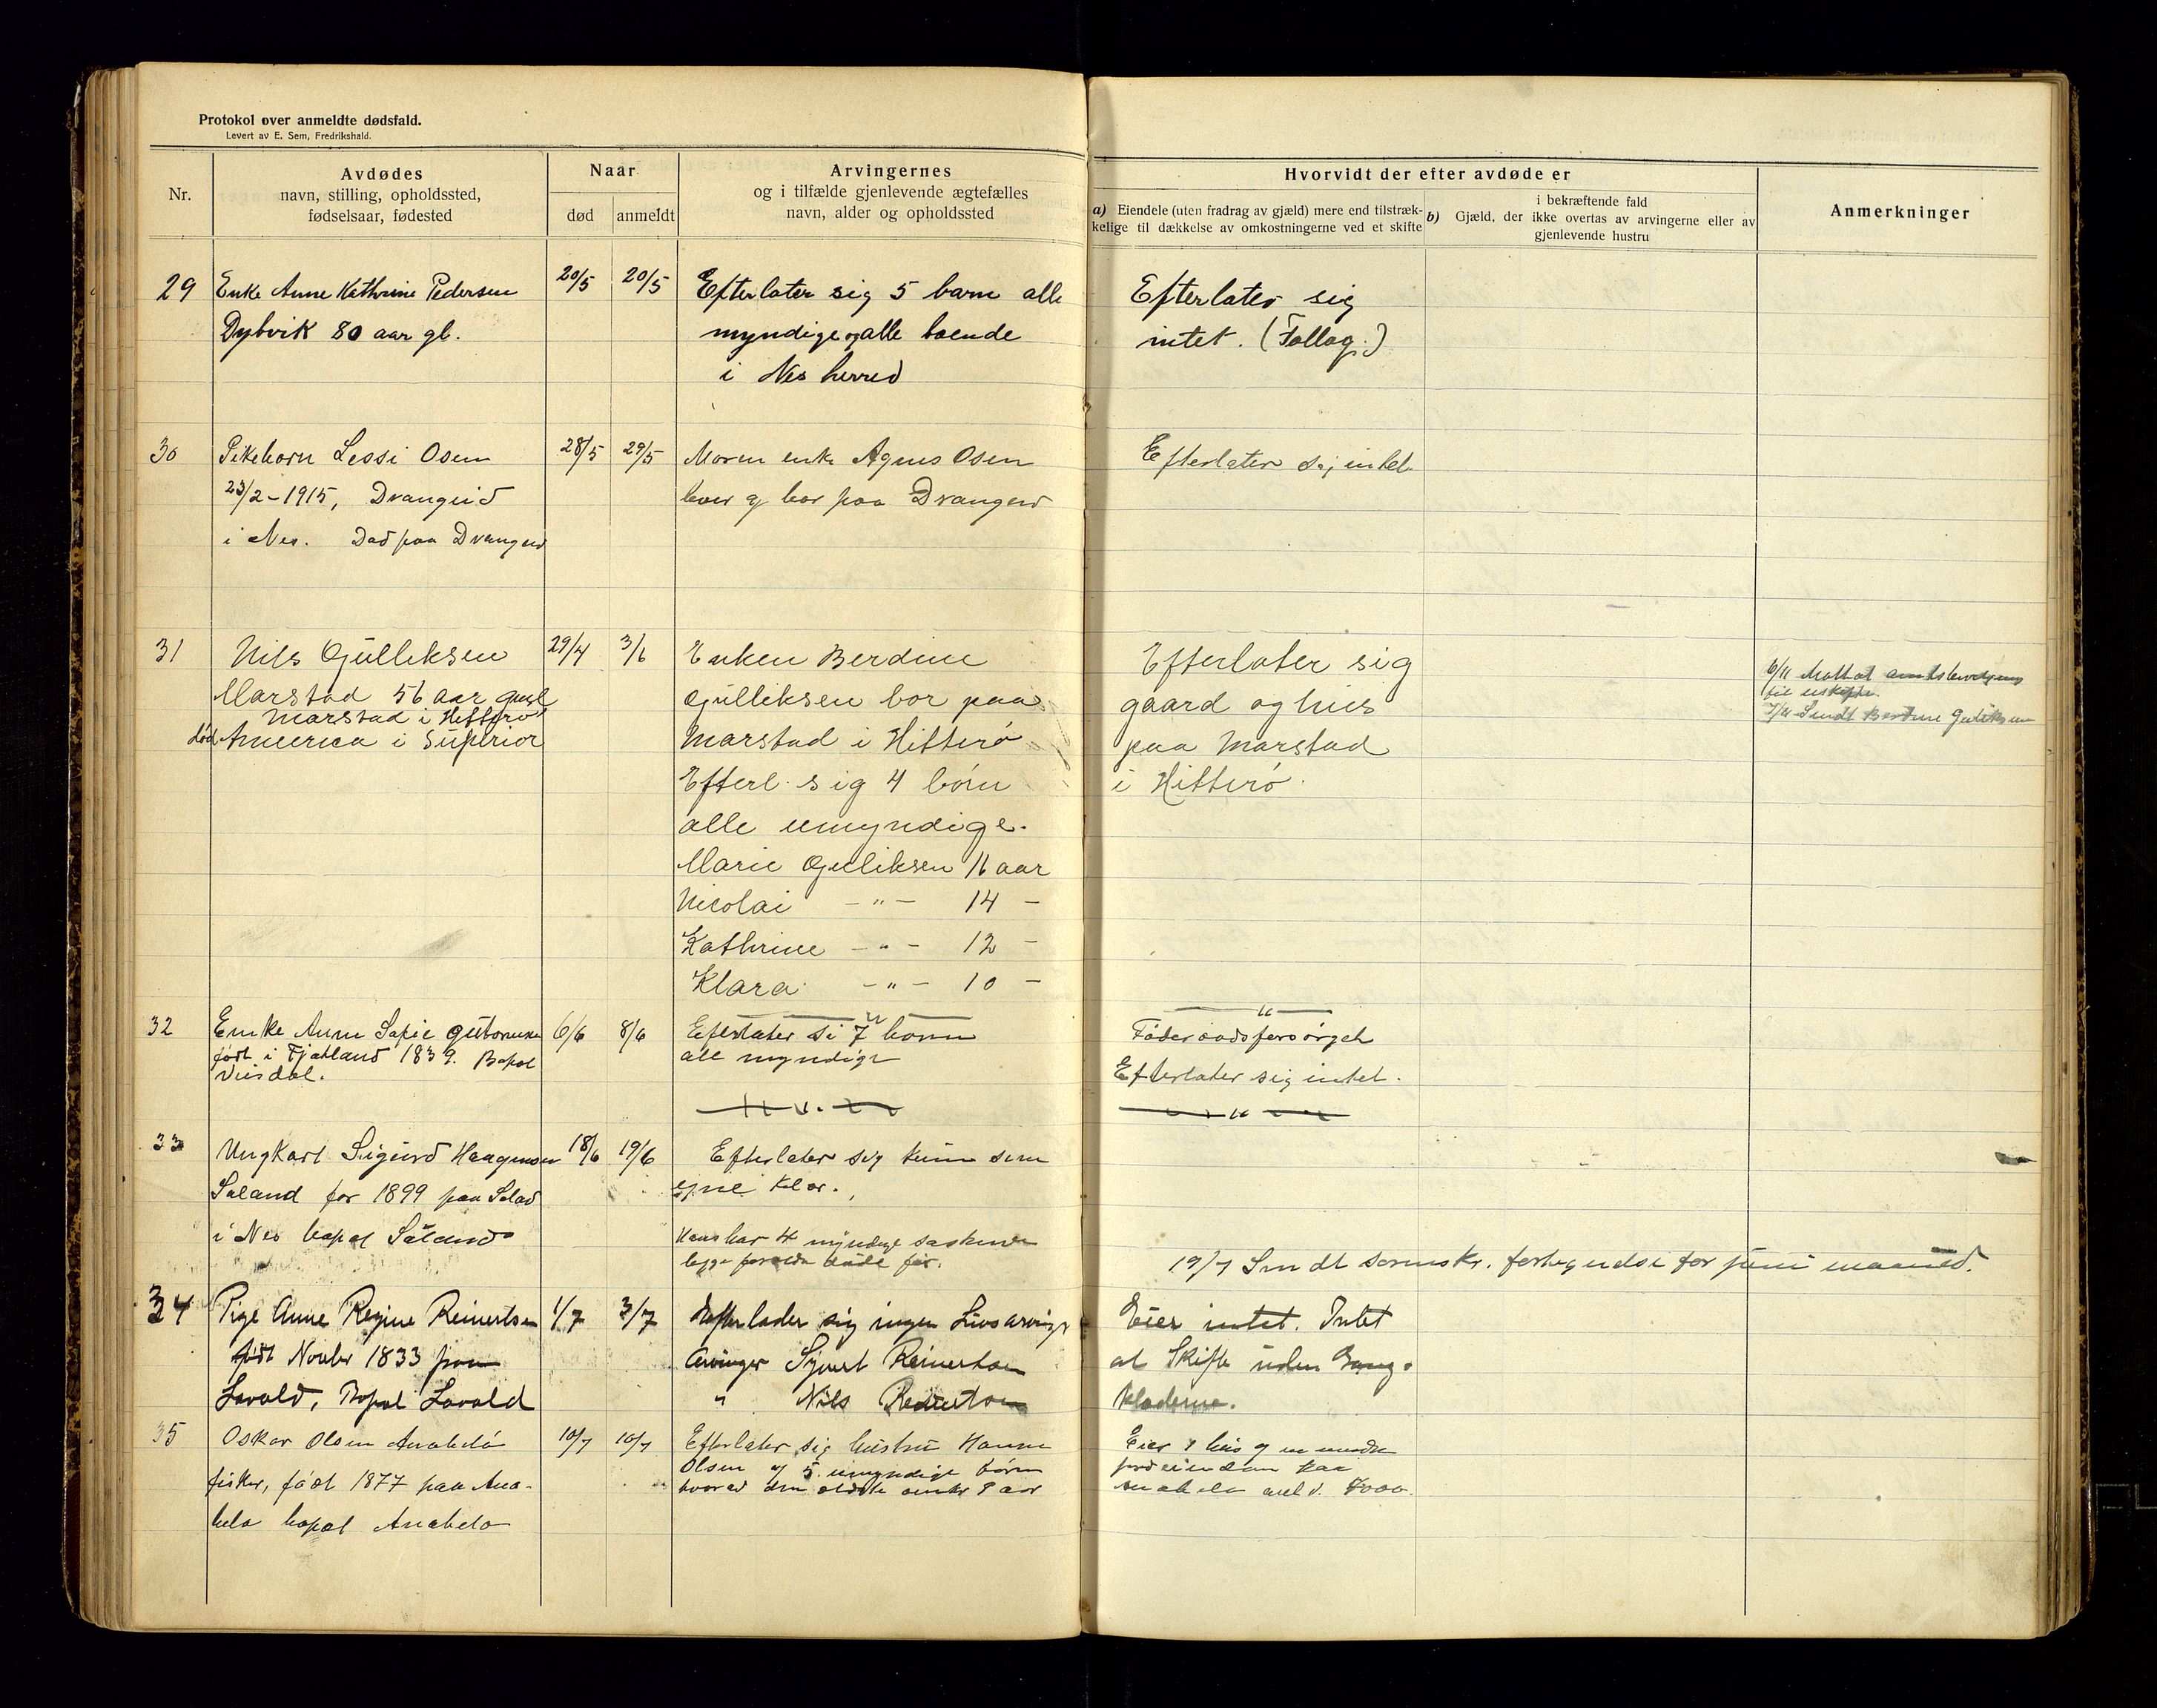 Protokol over anmeldte dødsfald.
Levert av E. Sem, Fredrikshald.
Nr.
Avdødes
navn, stilling, opholdssted,
fødselsaar, fødested
Naar
død
anmeldt
Arvingernes
og i tilfælde gjenlevende ægtefælles
navn, alder og opholdssted
Hvorvidt der efter avdøde er
a) Eiendele (uten fradrag av gjæld) mere end tilstræk-
kelige til dækkelse av omkostningerne ved et skifte
i bekræftende fald
b) Gjæld, der ikke overtas av arvingerne eller av
gjenlevende hustru
Anmerkninger
29
Enke Anne Kathrine Pedersen
Dybvik 80 aar gl.
20/5
20/5
Efterlater sig 5 barn alle
myndige og alle boende
i Nes herred
Efterlater sig
intet. (Fattig.)
30
Pikebarn Lessi Osen
23/2-1915, Drangeid
i Nes. Død paa Drangeid
28/5
29/5
Moren enke Agnes Osen
lever og bor paa Drangeid
Efterlater sig intet
31
Nils Gülliksen
Marstad 56 aar gml
Marstad i Hitterø
død America i Superior
29/4
3/6
Enken Berdine
Gülliksen bor paa
Marstad i Hitterø
Efterl. sig 4 börn
alle umyndige.
Marie Gulliksen 16 aar
Nicolai -"- 14 -
Kathrine -"- 12 -
Klara -"- 10 -
Efterlater sig
gaard og hus
paa Marstad
i Hitterø.
6/11 Mottat
til uskifte.
7/11 Sendt Berdine Guliksen
32
Enke Anne Sofie Gutormsen
født i Fjotland 1839. Bopæl
6/6
8/6
Efterlater si 7 born
all myndige
Föderaadsforsörget
Efterlater sig intet.
33
Ungkarl Sigurd Haagensen
Saland for 1899 paa Salad
i Nes bopæl Saland
18/6
19/6
Efterlater sig kun sine
egne klær.
Han har 4 myndige søskende
begge forældre døde før.
19/7 Sendt sorenskr. fortegnelse for juni maaned.
34
Pige Anne Regine Reinertsen
født Novbr 1833 paa
Lavold, Bopæl Lavold
1/7
3/7
Efterlader sig ingen Livsarvinge
Arvinger Sjvert Reinertsen
" Nils Reinertsen
Eier intet. Intet
at Skifte uden Gang-
klæderne.
35
Oskar Olsen Anabelö
fisker, födt 1877 paa Ana-
belø bopæl Anabelø
10/7
10/7
Efterlater sig hustru Hanne
Olsen og 5 umyndige børn
hvorav den ældste omkr 8 aar
Eier 1 hus og en mindre
jordeiendom paa
Anabelø